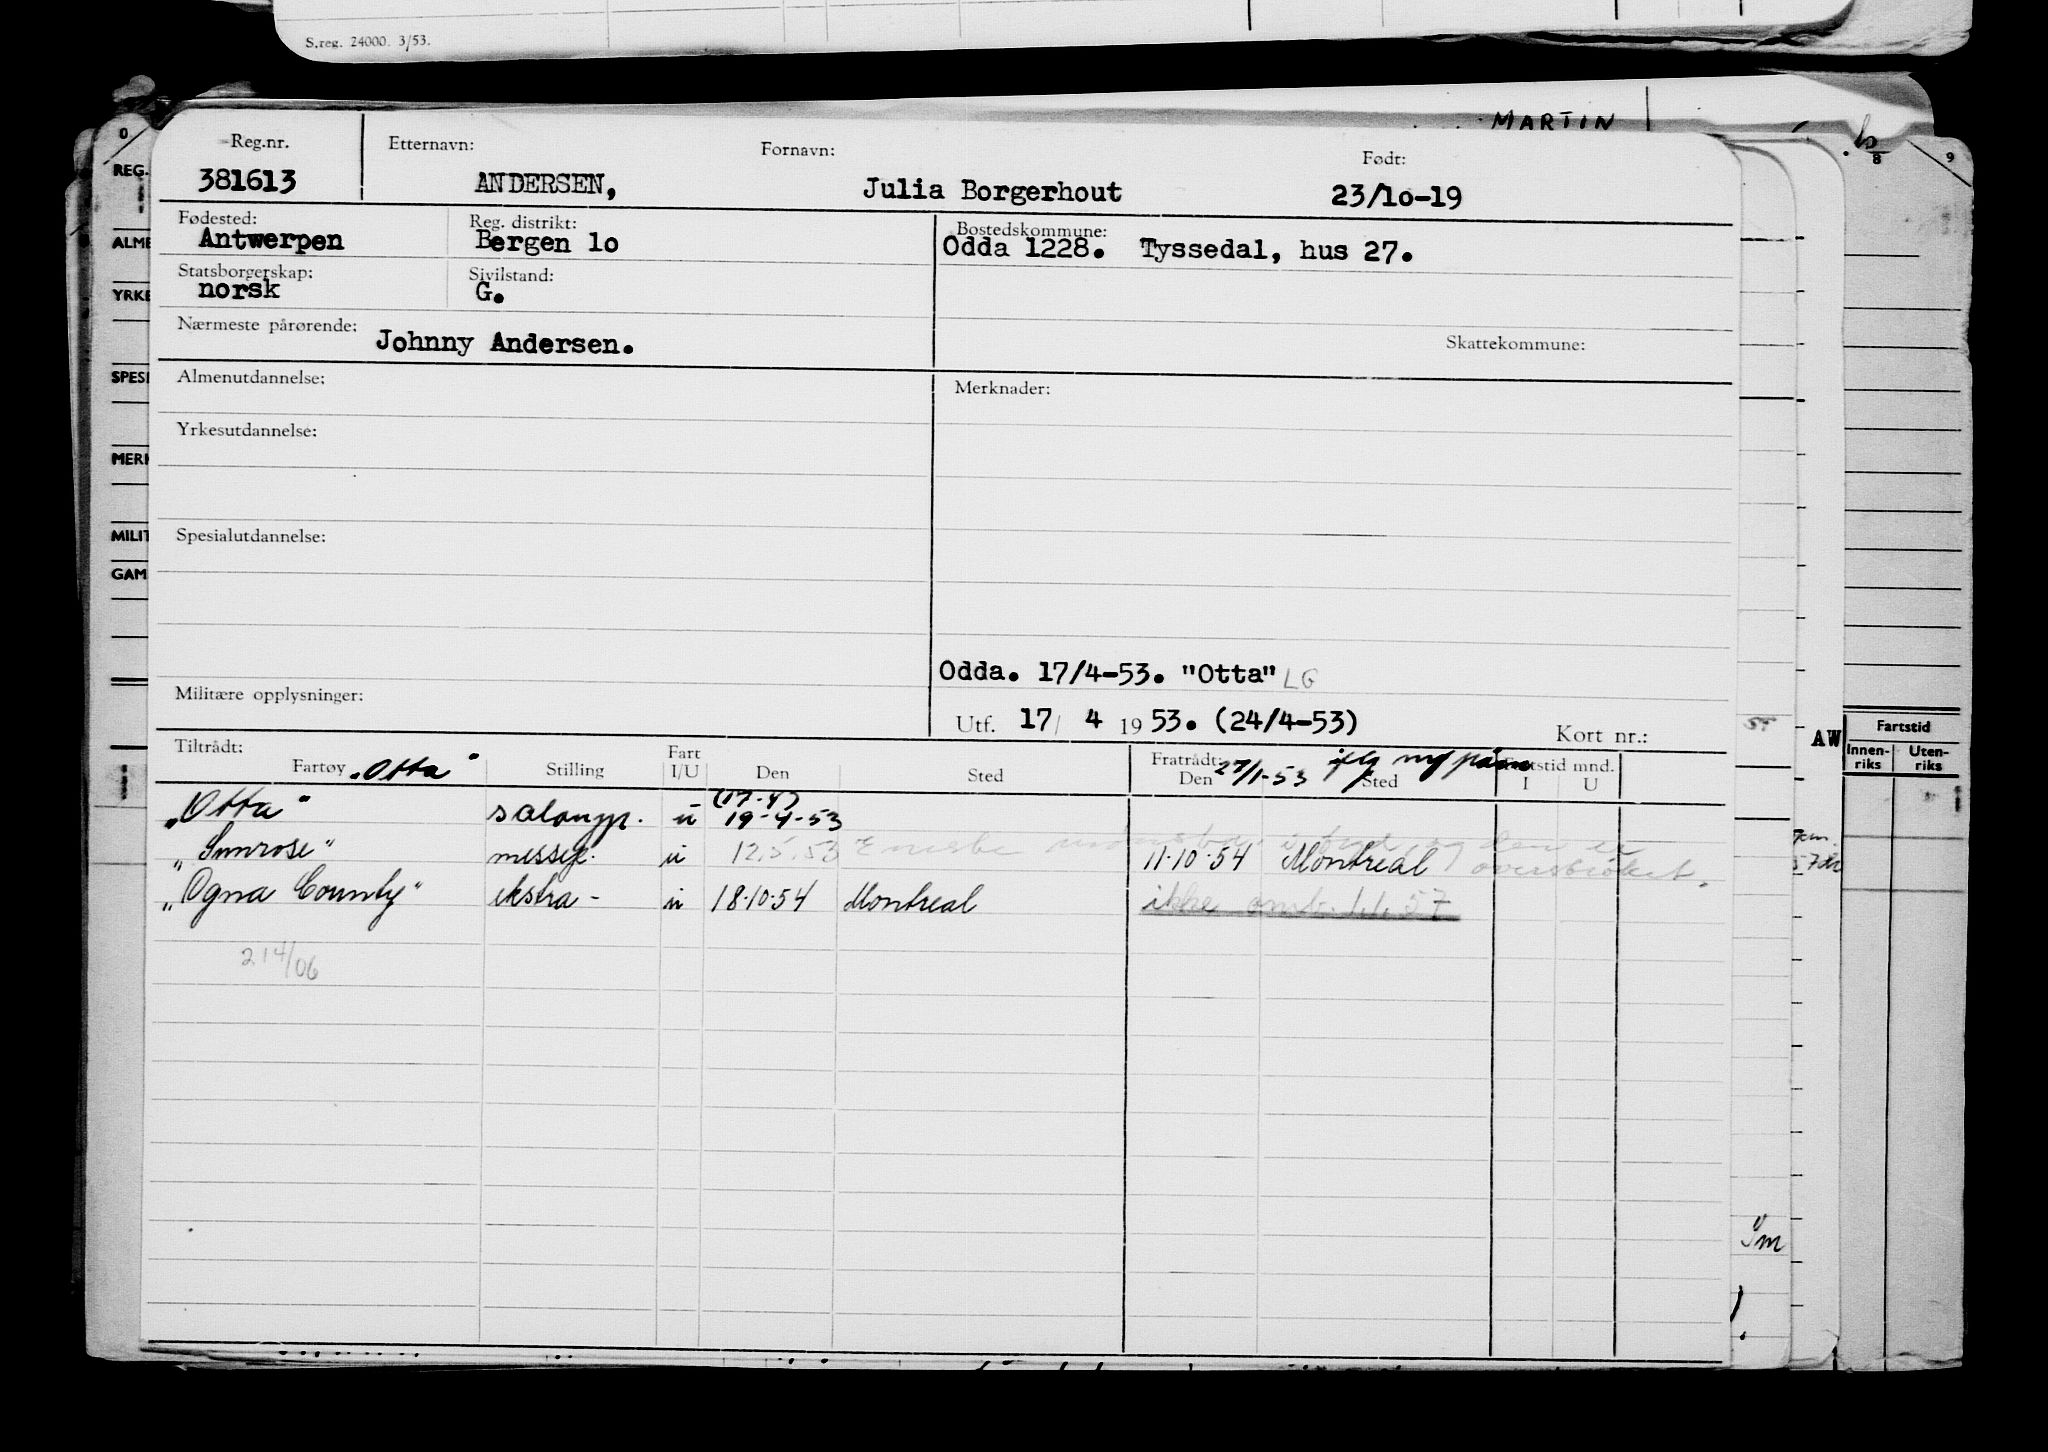 S.reg. 24000. 3/53.
MARTIN
Reg.nr. Etternavn: Fornavn: Født:
381613 ANDERSEN, Julia Borgerhout 23/10-19
Fødested: Reg. distrikt: Bostedskommune:
Antwerpen Bergen 10 Odda 1228. Tyssedal, hus 27.
Statsborgerskap: Sivilstand:
norsk G.
Nærmeste pårørende: Johnny Andersen. Skattekommune:
Almenutdannelse: Merknader:
Yrkesutdannelse:
Spesialutdannelse:
Odda. 17/4-53. "Otta" LG
Militære opplysninger:
Utf. 17/ 4 1953. (24/4-53) Kort nr.:
Tiltrådt: Fart Fratrådt: Fartstid mnd.
Fartøy "Otta" Stilling I/U Den Sted Den 27/1-53 Sted I U
"Otta" salongp. u (17-4) 19-4-53
"Sunrose" messep. u 12.5.53 11.10.54 Montreal
"Ogna County" ekstra - u 18.10.54 Montreal ikke omb. 1.1.57
214/06
O
REG.
ALME
YRKE
SPESI
MERK
MILIT
GAM
8 9
AW
Fartstid
Innen-riks Uten-riks